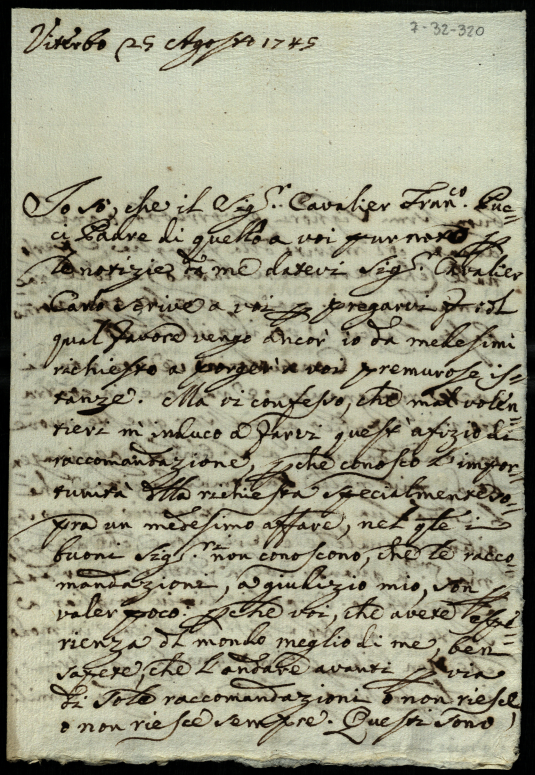 7-32-320
Viterbo 25 Agosto 1745
Io so, che il Sig.r Cavalier Fran.co Puc=
ci Padre di quello a voi pur noto p
le notizie da me datevi Sig.r Cavalier
Carlo scrive a voi p pregarvi
qual favore vengo ancor io da medesimi
richiesto a porger a voi premurose is=
tanze. Ma vi confesso, che mal volen=
tieri m'induco a farvi quest'afizio di
raccomandazione, pche conosco l'impor=
tunità della richiesta specialmente so=
pra un medesimo affare, nel qle i
buoni Sig.ri non conoscono, che le racco=
mandazione, a giudizio mio, son
valer poco. pche voi, che avete l'espe=
rienza dl mondo meglio di me, ben
sapete, che l'andare avanti p via
di sole raccomandazioni o non riesce,
o non riesce sempre. Questi sono